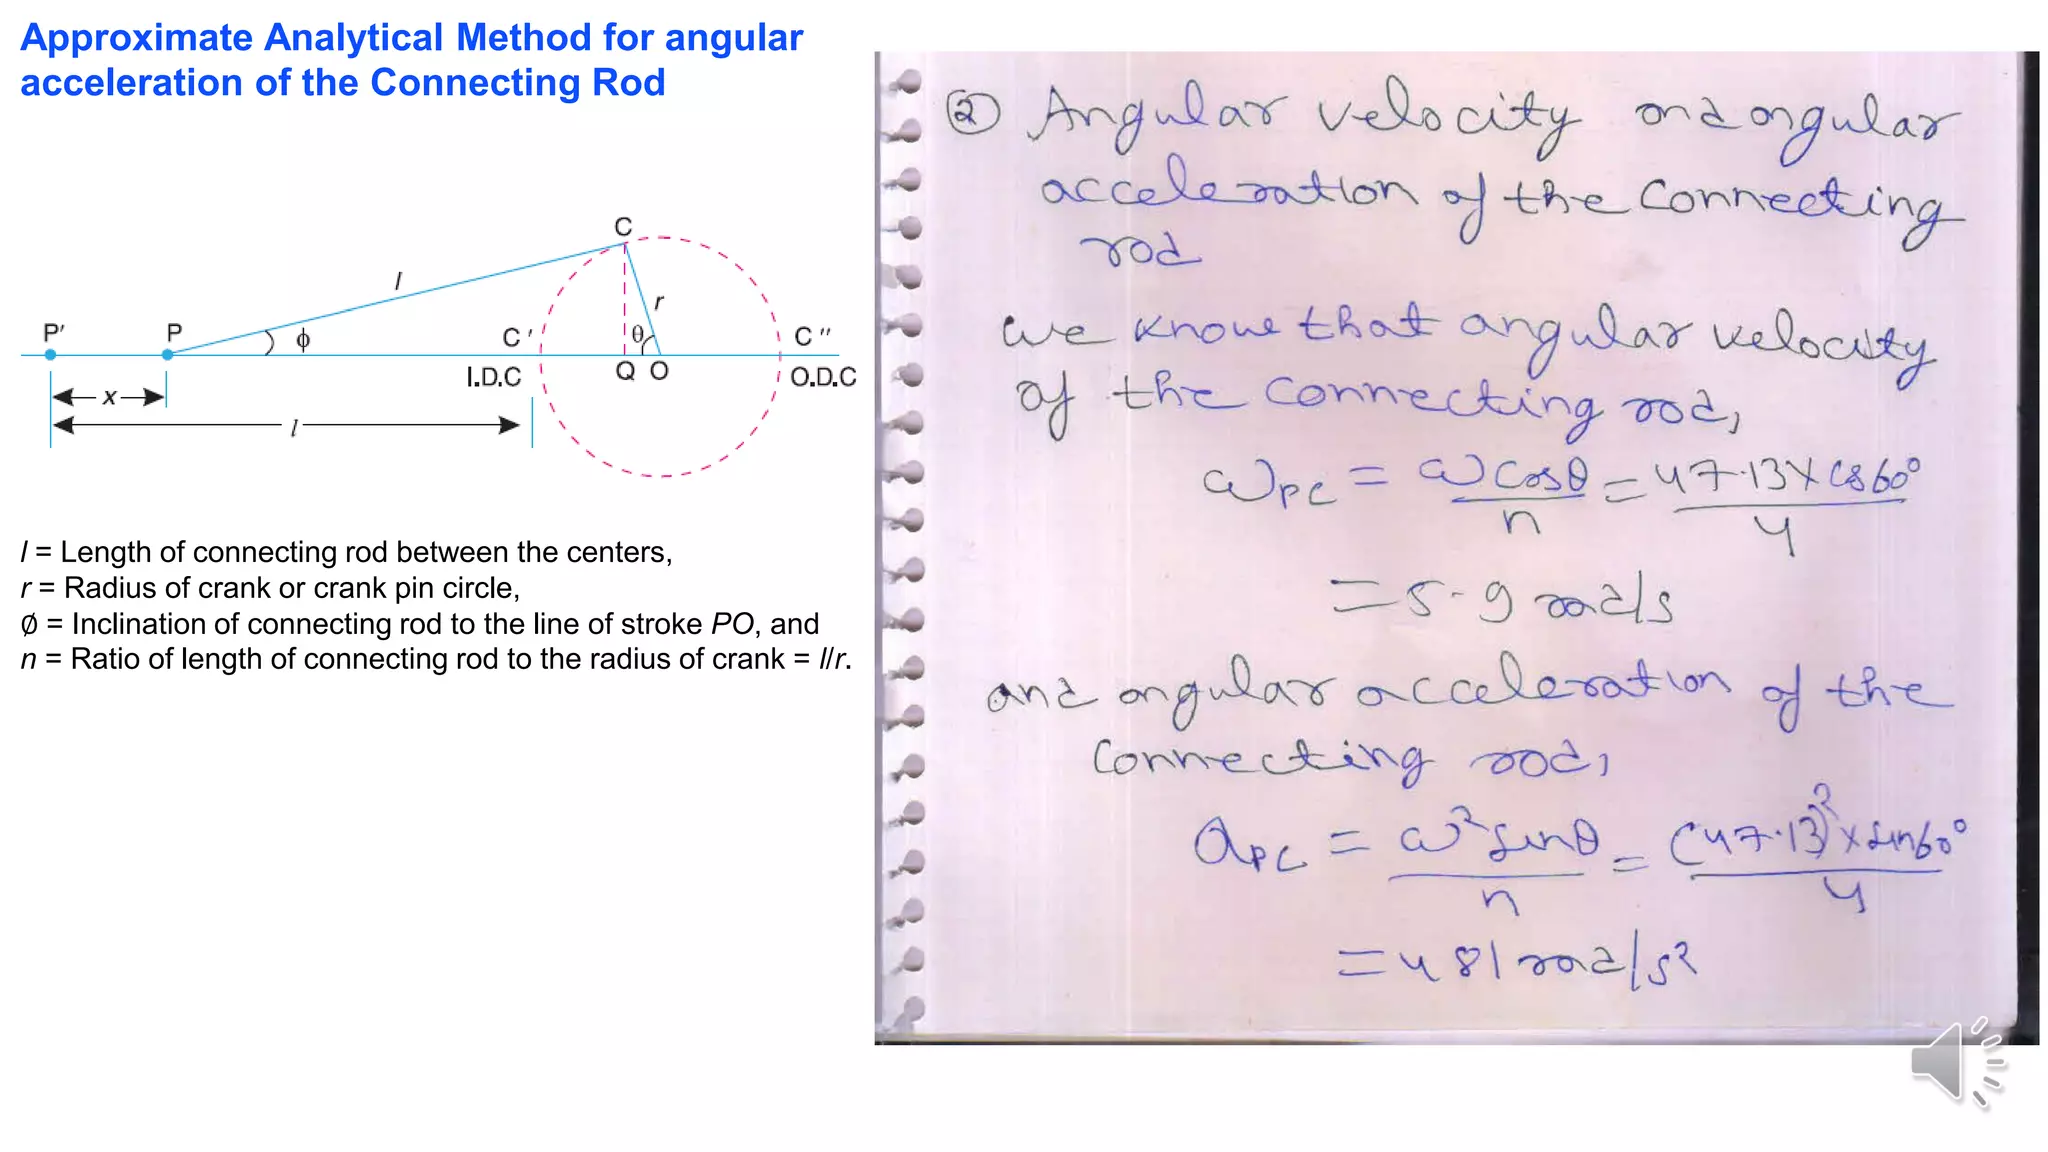 Approximate Analytical Method for angular
acceleration of the Connecting Rod
C
l
r
P′
P
ϕ
C ′
θ
C ″
I.D.C
Q O
O.D.C
x
l
l = Length of connecting rod between the centers,
r = Radius of crank or crank pin circle,
∅ = Inclination of connecting rod to the line of stroke PO, and
n = Ratio of length of connecting rod to the radius of crank = l/r.
② Angular velocity and angular
acceleration of the Connecting
rod
we know that angular velocity
of the connecting rod,
ω_PC = ω cosθ / n = 47.13 × cos60° / 4
= 5.9 rad/s
and angular acceleration of the
Connecting rod,
a_PC = ω² sinθ / n = (47.13)² × sin60° / 4
= 481 rad/s²